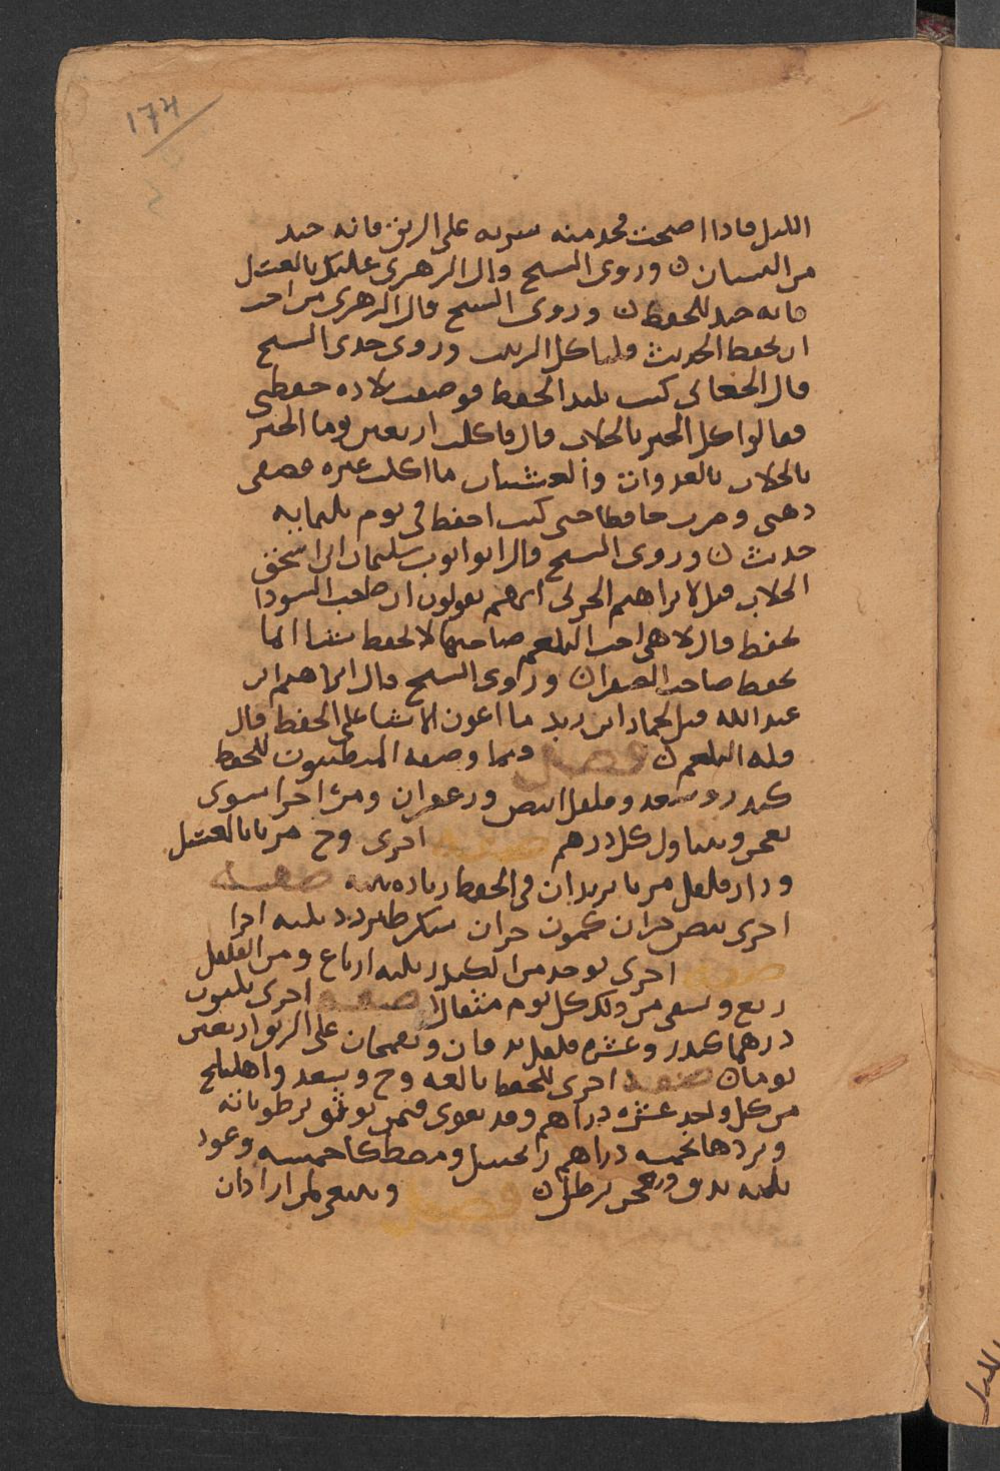 ١٧٤
الليل فاذا اصبحت فخذ منه شربه على الريق فانه جيد
من النسيان ٥ وروى الشيخ قال الزهرى عليك بالعسل
فانه جيد للحفظ ٥ وروى الشيخ قال الزهرى من احب
ان يحفظ الحديث فلياكل الزبيب وروى جدى الشيخ
قال الجعابى كنت بليد الحفظ فوصفت بلاده حفظى
فقالوا كل الخبز بالجلاب قال فاكلت اربعين يوما الخبز
بالجلاب بالغدوات والعشيات ما اكلت غيره فصفى
ذهنى وصرت حافظا حتى كنت احفظ فى يوم ثلثمايه
حديث ٥ وروى الشيخ قال ابو ايوب سليمان ابن اسحق
الجلاب قيل لابراهيم الحربى انهم يقولون ان صاحب السودا
يحفظ قال لا هى اخت البلغم صاحبها لا يحفظ شيا انما
يحفظ صاحب الصفرا ٥ وروى الشيخ قال ابراهيم ابن
عبد الله قيل لحماد ابن زيد ما اعون الاشيا على الحفظ قال
قله البلغم ٥ فصل ومما وصفه المتطببون للحفظ
كندر وسعد وفلفل ابيض وزعفران ومر اجزا سوى
يعجن ويتناول كل درهم صفه اخرى وج مربا بالعسل
ودار فلفل مربا يزيدان فى الحفظ زياده بينه صفه
اخرى بيض جزان كمون جزان سكر طبرزد ثلثه اجزا
صفه اخرى يوخذ من الكندر ثلثه ارباع ومن الفلفل
ربع ويسقى من ذلك كل يوم مثقالا صفه اخرى ثلثون
درهما كندر وعشره فلفل يدقان ويعجنان على الريق اربعين
يوما ٥ صفه اخرى للحفظ بالغه وج وسعد واهليلج
من كل واحد عشره دراهم وقد يقوى فيمن يوثق برطوباته
وبردها بخمسه دراهم زنجبيل ومصطكا خمسه وعود
ثلثه يدق ويعجن برطل ٥ فصل وينبغى لمن اراد ان